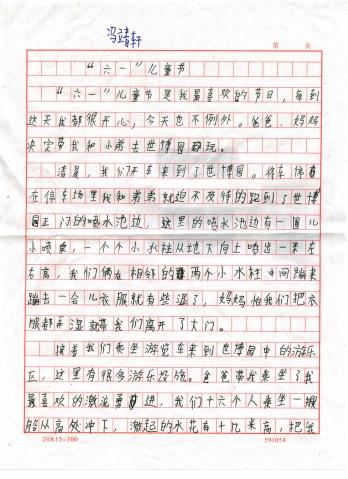 冯靖轩
第 页
“六一”儿童节
“六一”儿童节是我最喜欢的节日，每到
这天我都很开心，今天也不例外。爸爸、妈妈
决定带我和小弟去世博园游玩。
清晨，我们开车来到了世博园。将车停车
在停车场里我和弟弟就迫不及待的跑到了世博
园正门的喷水池边，这里的喷水池边有一圈儿
小喷泉，一个个小水柱从地下向上喷出一米左
右高，我们俩在相邻的两个小水柱中间蹦来
蹦去一会儿衣服就有些湿了，妈妈怕我们把衣
服都弄湿就带我们离开了大门。
接着我们乘坐游览车来到世博园中的游乐
区，这里有很多游乐设施。爸爸带我乘坐了我
最喜欢的激流勇进，我们十六个人乘坐一艘
船从高处冲下，激起的水花有十几米高，把我
20X15=300
591054